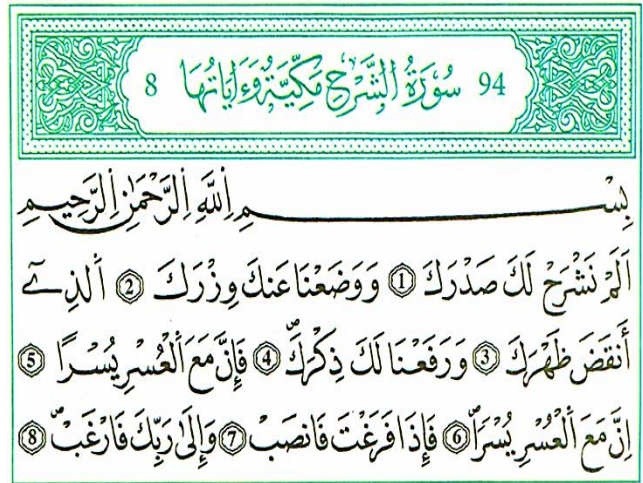 94 سُورَةُ الشَّرْحِ مَكِّيَّةٌ وَءَايَاتُهَا 8
بِسْمِ اِ۬للَّهِ اِ۬لرَّحْمَٰنِ اِ۬لرَّحِيمِ
أَلَمْ نَشْرَحْ لَكَ صَدْرَكَ 1 وَوَضَعْنَا عَنكَ وِزْرَكَ 2 اَ۬لذِےٓ
أَنقَضَ ظَهْرَكَ 3 وَرَفَعْنَا لَكَ ذِكْرَكَۖ 4 فَإِنَّ مَعَ اَ۬لْعُسْرِ يُسْراً 5
اِنَّ مَعَ اَ۬لْعُسْرِ يُسْراٗۖ 6 فَإِذَا فَرَغْتَ فَانصَبْ 7 وَإِلَىٰ رَبِّكَ فَارْغَبْۖ 8